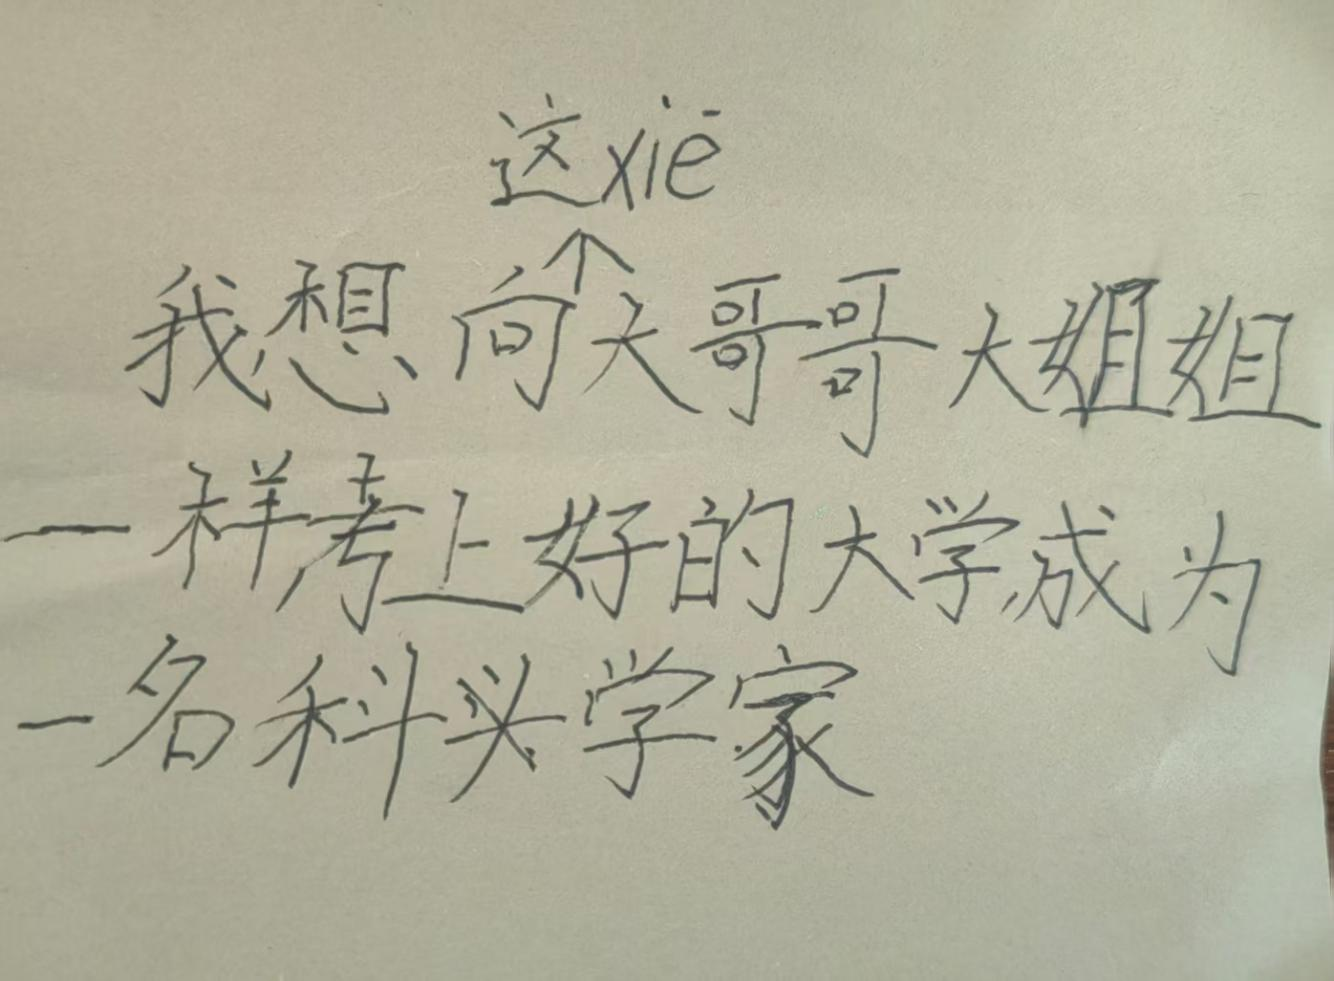 这xiē
↑
我想向大哥哥大姐姐
一样考上好的大学成为
一名科头学家